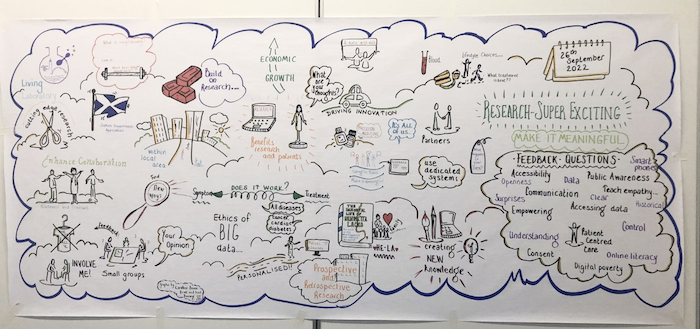 Living
cutting edge research
Build
on
Research...
ECONOMIC
GROWTH
What are
now
thoughts?
DRIVING INNOVATION
Blood
Lifestyle Choices...
What treatment
26th
September
2022
RESEARCH-SUPER EXCITING
MAKE IT MEANINGFUL
within
local
area
Benefits
research and
patients
It's All
of us...
Partners
Enhance Collaboration
use
dedicated
systems
Symptom
DOES IT WORK?
Treatment
All diseases
cancer
cardiac
diabetes
Ethics of
BIG
data...
THE
IMMORTAL
LIFE OF
HENRIETTA
LACKS
HE-LA
creating
NEW
Knowledge
Feedback
Your
Opinion
INVOLVE
ME!
Small groups
PERSONALISED!!
Prospective
and
Retrospective
Research
FEEDBACK-QUESTIONS
Smart
phones
Accessibility
Data
Public Awareness
Openness
Teach empathy...
Communication
Clear
Surprises
Historical
Empowering
Accessing data
Control
Understanding
Patient
Centred
care
Consent
Online literacy
Digital poverty